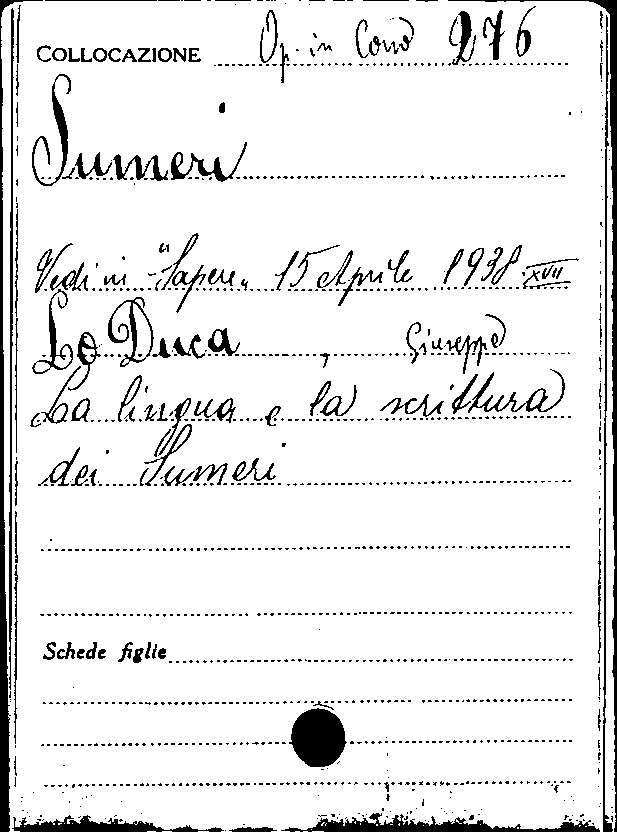 COLLOCAZIONE Op. in Cons 276
Sumeri
Vedi in "Sapere" 15 Aprile 1938-XVII
Lo Duca, Giuseppe
La lingua e la scrittura
dei Sumeri
Schede figlie